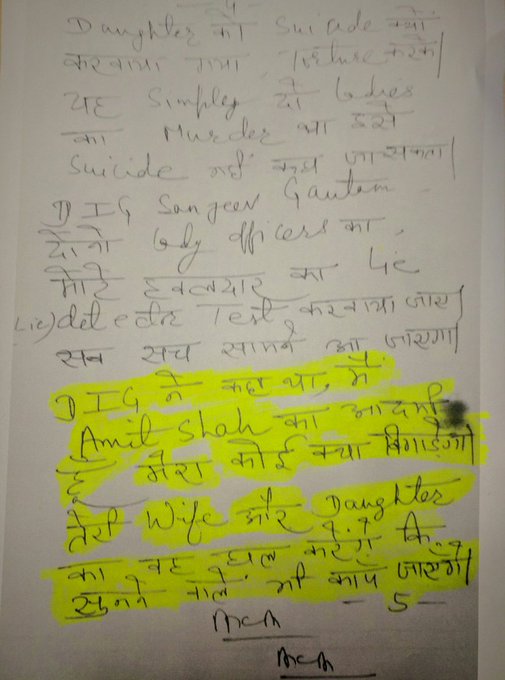 4
Daughter को Suicide क्यों
करवाया गया, Torture करके।
यह Simply दो Ladies
का Murder था इसे
Suicide नहीं कहा जा सकता।
DIG Sanjeev Gautam,
दोनो Lady officers का,
मोटे हवलदार का Lie
(Lie) detector Test करवाया जाए।
सब सच सामने आ जाएगा।
DIG ने कहा था, मैं
Amit Shah का आदमी
हूँ मेरा कोई क्या बिगाड़ेगा।
तेरी Wife और Daughter
का वह हाल करेंगे कि
सुनने वाले भी काँप जाएँगे।
— 5 —